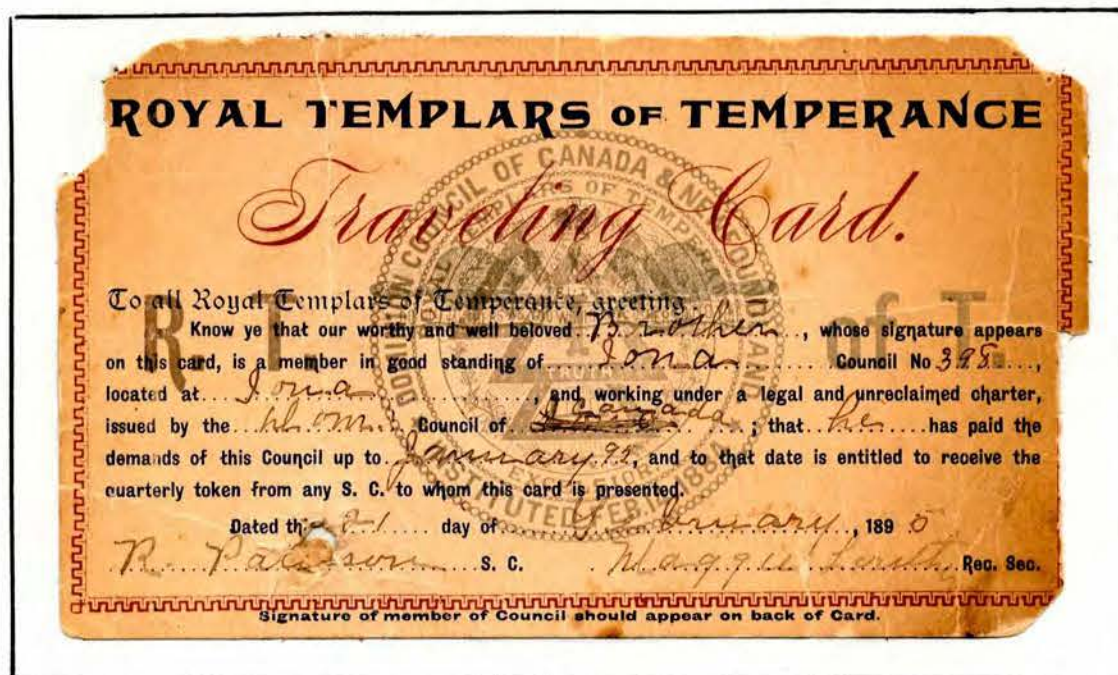 ROYAL TEMPLARS OF TEMPERANCE
Traveling Card.
To all Royal Templars of Temperance, greeting
Know ye that our worthy and well beloved Brother, whose signature appears
on this card, is a member in good standing of Iona Council No 398,
located at Iona, and working under a legal and unreclaimed charter,
issued by the Dom Council of Canada; that he has paid the
demands of this Council up to January 95, and to that date is entitled to receive the
quarterly token from any S. C. to whom this card is presented.
Dated th 21 day of January, 1895
R. Patterson S. C. Maggie Rec. Sec.
Signature of member of Council should appear on back of Card.
R. T. of T.
DOMINION COUNCIL OF CANADA & NEWFOUNDLAND
ROYAL TEMPLARS OF TEMPERANCE
TRUTH
INSTITUTED FEB. 1884